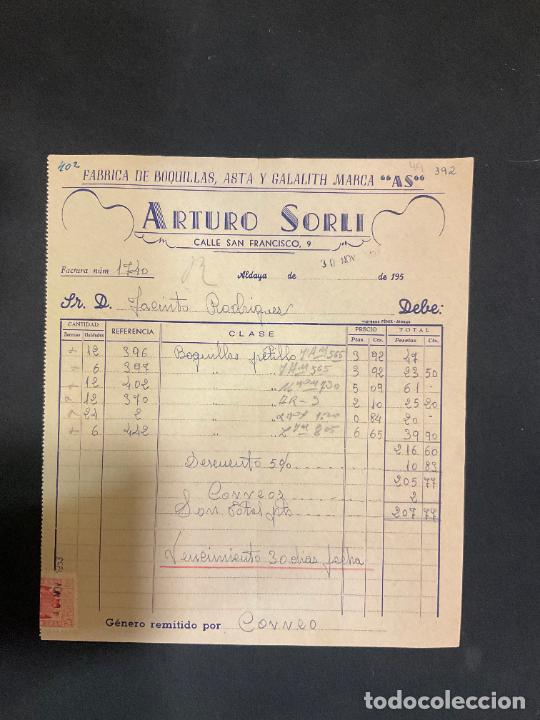 402 49 392
FABRICA DE BOQUILLAS, ASTA Y GALALITH MARCA "AS"
ARTURO SORLI
CALLE SAN FRANCISCO, 9
Factura núm 1740 Aldaya de 30 NOV de 195
Sr. D. Jacinto Rodriguez Debe:
CANTIDAD REFERENCIA CLASE PRECIO TOTAL
Docenas Unidades Ptas. Cts. Pesetas Cts.
12 396 Boquillas pitillo 565 3 92 47
6 397 " " 565 3 92 23 50
12 402 " " 730 5 09 61 -
12 370 " " AR-3 2 10 25 20
24 2 " " 1.20 0 84 20 -
6 442 " " 805 6 65 39 90
216 60
Descuento 5% 10 83
205 77
Correos 2
Son Ptas 207 77
Vencimiento 30 dias fecha
NOV 1953
Género remitido por Correo
todocoleccion.net